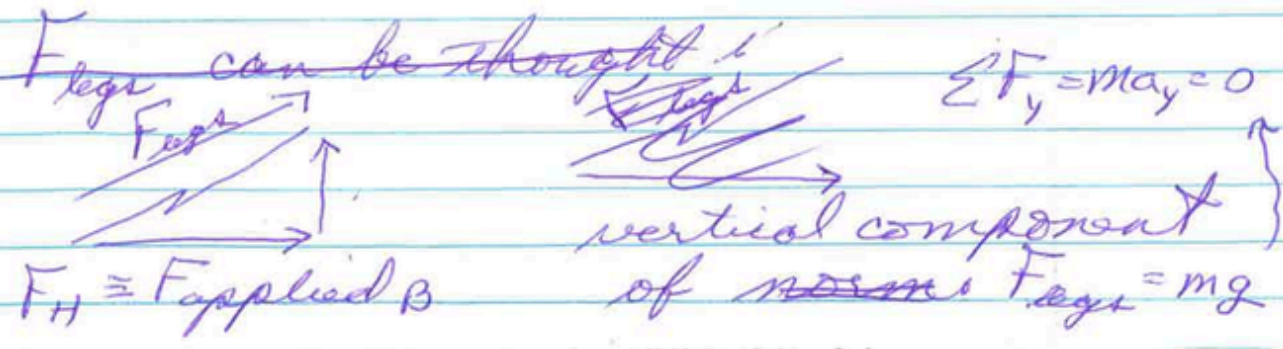 F legs can be thought i
F legs
F legs
ΣFy = may = 0
vertical component
FH ≡ Fapplied B
of norm. F legs = mg